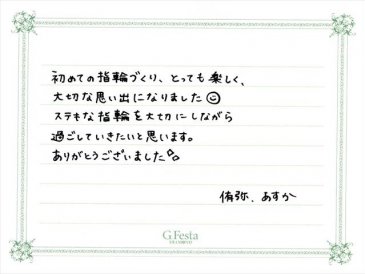 初めての指輪づくり、とっても楽しく、
大切な思い出になりました☺
ステキな指輪を大切にしながら
過ごしていきたいと思います。
ありがとうございました
侑弥、あすか
G.Festa